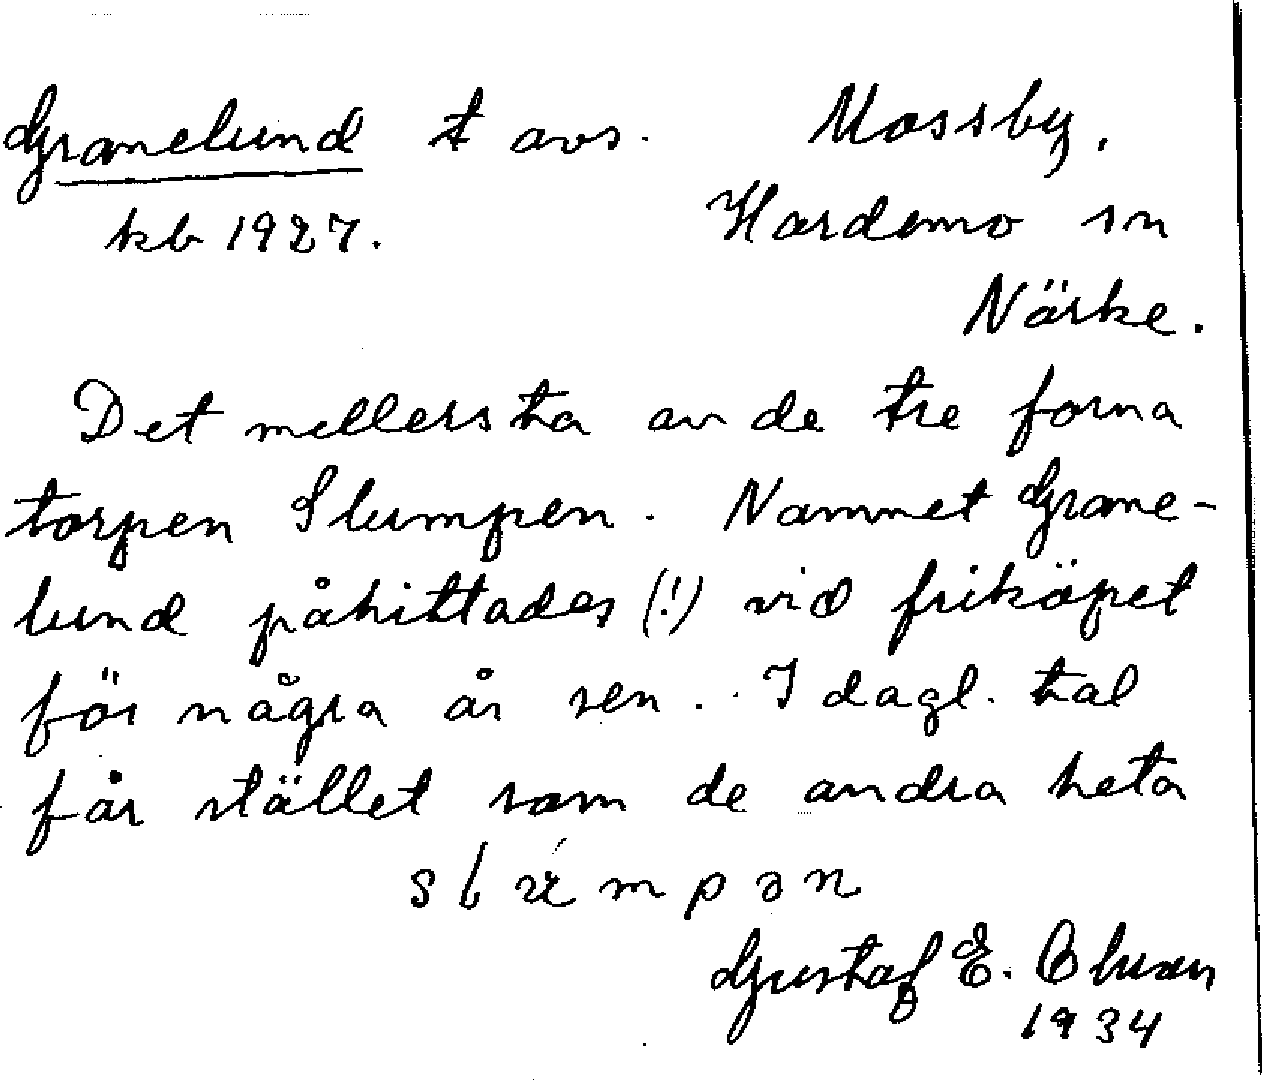 Granelund t avs. Mossby,
kb 1927. Hardemo sn
Närke.
Det mellersta av de tre forna
torpen Slumpen. Namnet Grane-
lund påhittades (!) vid friköpet
för några år sen. I dagl. tal
får stället som de andra heta
Gustaf E. Olsson
1934